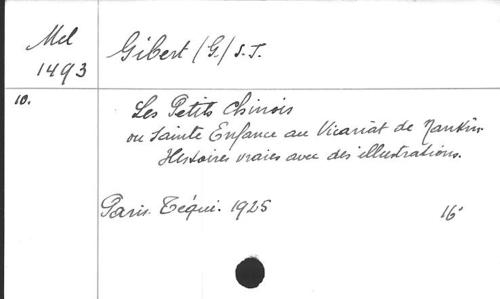 Mel
1493
Gibert (G.) S.J.
10.
Les Petits Chinois
ou Sainte Enfance au Vicariat de Nankin.
Histoires vraies avec des illustrations.
Paris. Téqui. 1925
16°